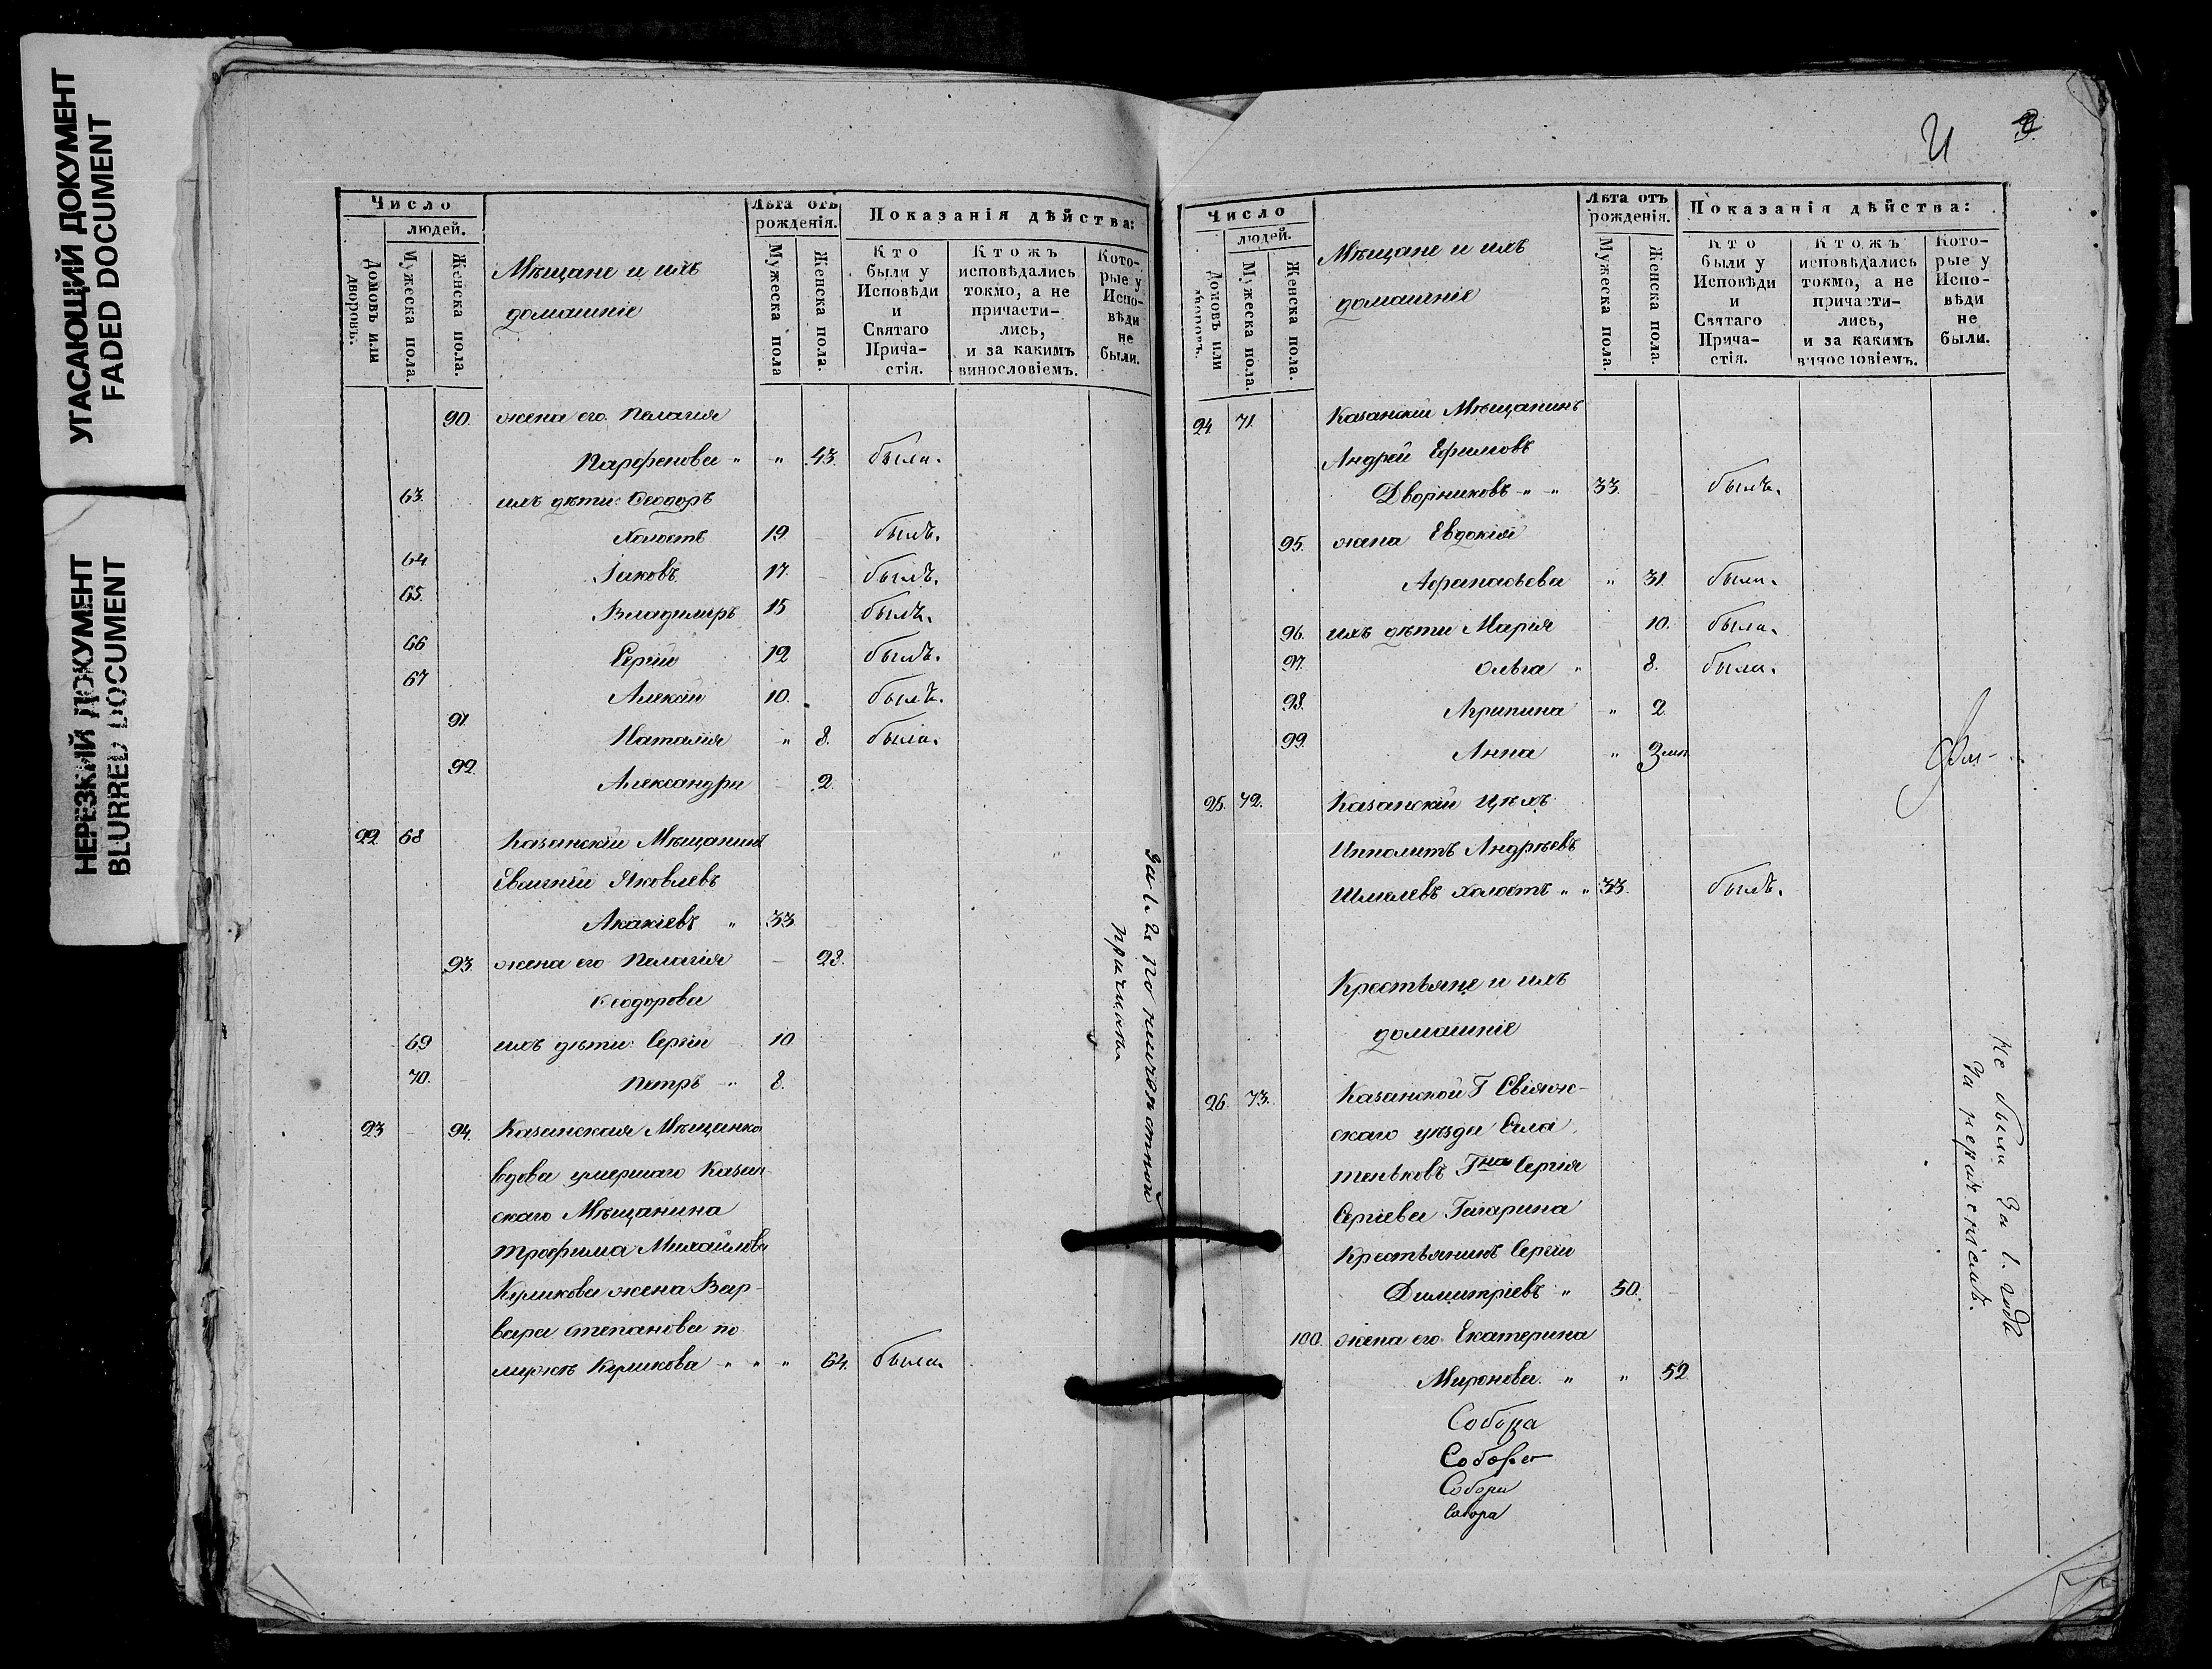 УГАСАЮЩИЙ ДОКУМЕНТ
FADED DOCUMENT
НЕРЕЗКИЙ ДОКУМЕНТ
BLURRED DOCUMENT
Число
людей.
Домовъ или дворовъ.
Мужеска пола.
Женска пола.
Мѣщане и ихъ
домашніе
Лѣта отъ рожденія.
Мужеска пола
Женска пола.
Показанія дѣйства:
Кто были у Исповѣди и Святаго Причастія.
Ктожъ исповѣдались токмо, а не причастились, и за какимъ винословіемъ.
Которые у Исповѣди не были.
90. жена его Пелагія
Парфенова " " 43. была.
63. ихъ дѣти: Ѳеодоръ
Холостъ 19. былъ.
64 Іаковъ 17. былъ.
65. Владимиръ 15 былъ.
66 Сергій 12 былъ.
67 Алексій 10. былъ.
91. Наталія " 8. была.
92. Александра 2.
22 68 Казанскій Мѣщанинъ
Евгеній Яковлевъ
Акакіевъ " 33
93. жена его Пелагія 28.
Ѳеодорова
69 ихъ дѣти: Сергій 10
70. Петръ " 8.
23 94. Казанская Мѣщанка
вдова умершаго Казан-
скаго Мѣщанина
Трофима Михайлова
Куликова жена Вар-
вара Степанова по
мужѣ Куликова " " " 64. была
за 1. 2 по
причинѣ
Число
людей.
Домовъ или дворовъ.
Мужеска пола.
Женска пола.
Мѣщане и ихъ
домашніе
Лѣта отъ рожденія.
Мужеска пола.
Женска пола.
Показанія дѣйства:
Кто были у Исповѣди и Святаго Причастія.
Ктожъ исповѣдались токмо, а не причастились, и за какимъ винословіемъ.
Которые у Исповѣди не были.
24. 71. Казанскій Мѣщанинъ
Андрей Ефимовъ
Дворниковъ " " 33. былъ.
95. жена Евдокія
Афанасьева " 31. была.
96. ихъ дѣти Марія 10. была.
97. Ольга " 8. была.
98. Агрипина " 2
99. Анна " 3
25. 72. Казанскій Цѣх.
Ипполитъ Андрѣевъ
Шмелевъ холостъ " " 33. былъ.
Крестьяне и ихъ
домашніе
26. 73. Казанской Г. Свіяж-
скаго уѣзда Села
Теньковъ Гна Сергія
Сергіева Гагарина
Крестьянинъ Сергій
Димитріевъ " 50.
100. жена его Екатерина
Миронова. " " 52
не были за 1. годъ
за нерачениемъ.
Собора
Собора
Собора
Собора